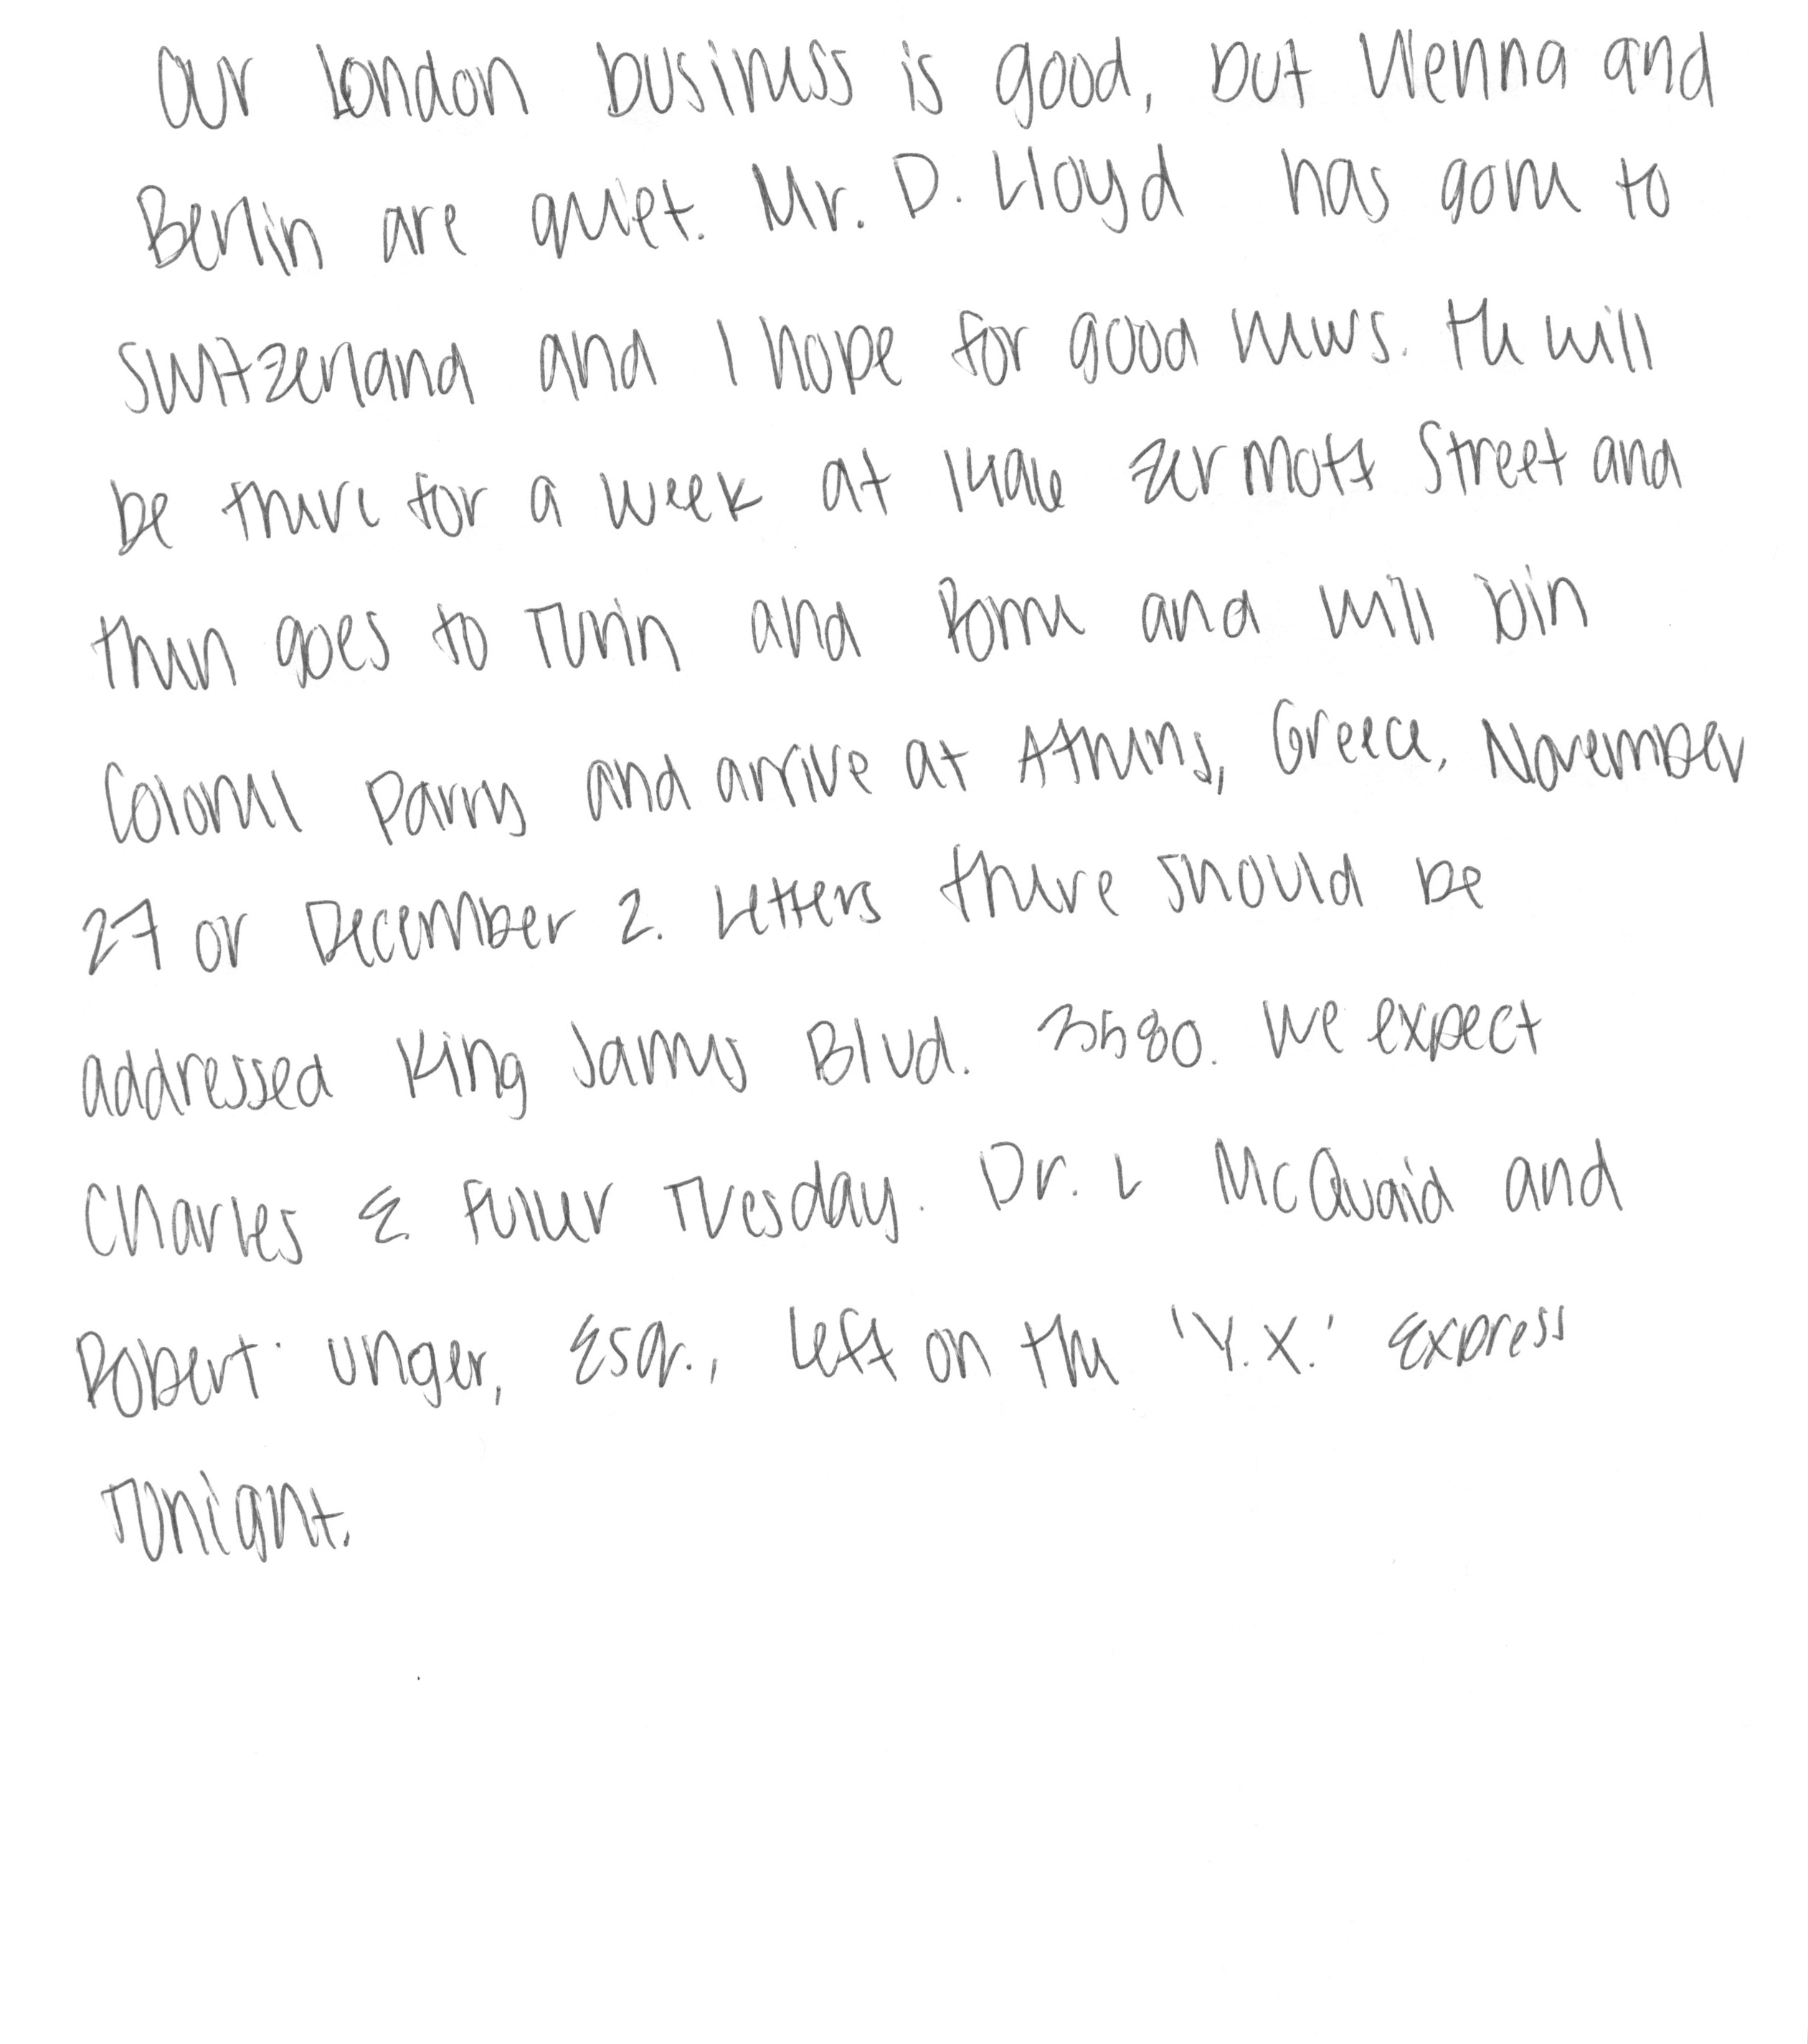 Our London business is good, but Vienna and
Berlin are quiet. Mr. D. Lloyd has gone to
Switzerland and I hope for good news. He will
be there for a week at 1496 Zermott Street and
then goes to Turin and Rome and will join
Colonel Parry and arrive at Athens, Greece, November
27 or December 2. Letters there should be
addressed King James Blvd. 3580. We expect
Charles E. Fuller Tuesday. Dr. L McQuaid and
Robert Unger, Esq., left on the 'Y.X.' Express
Tonight.